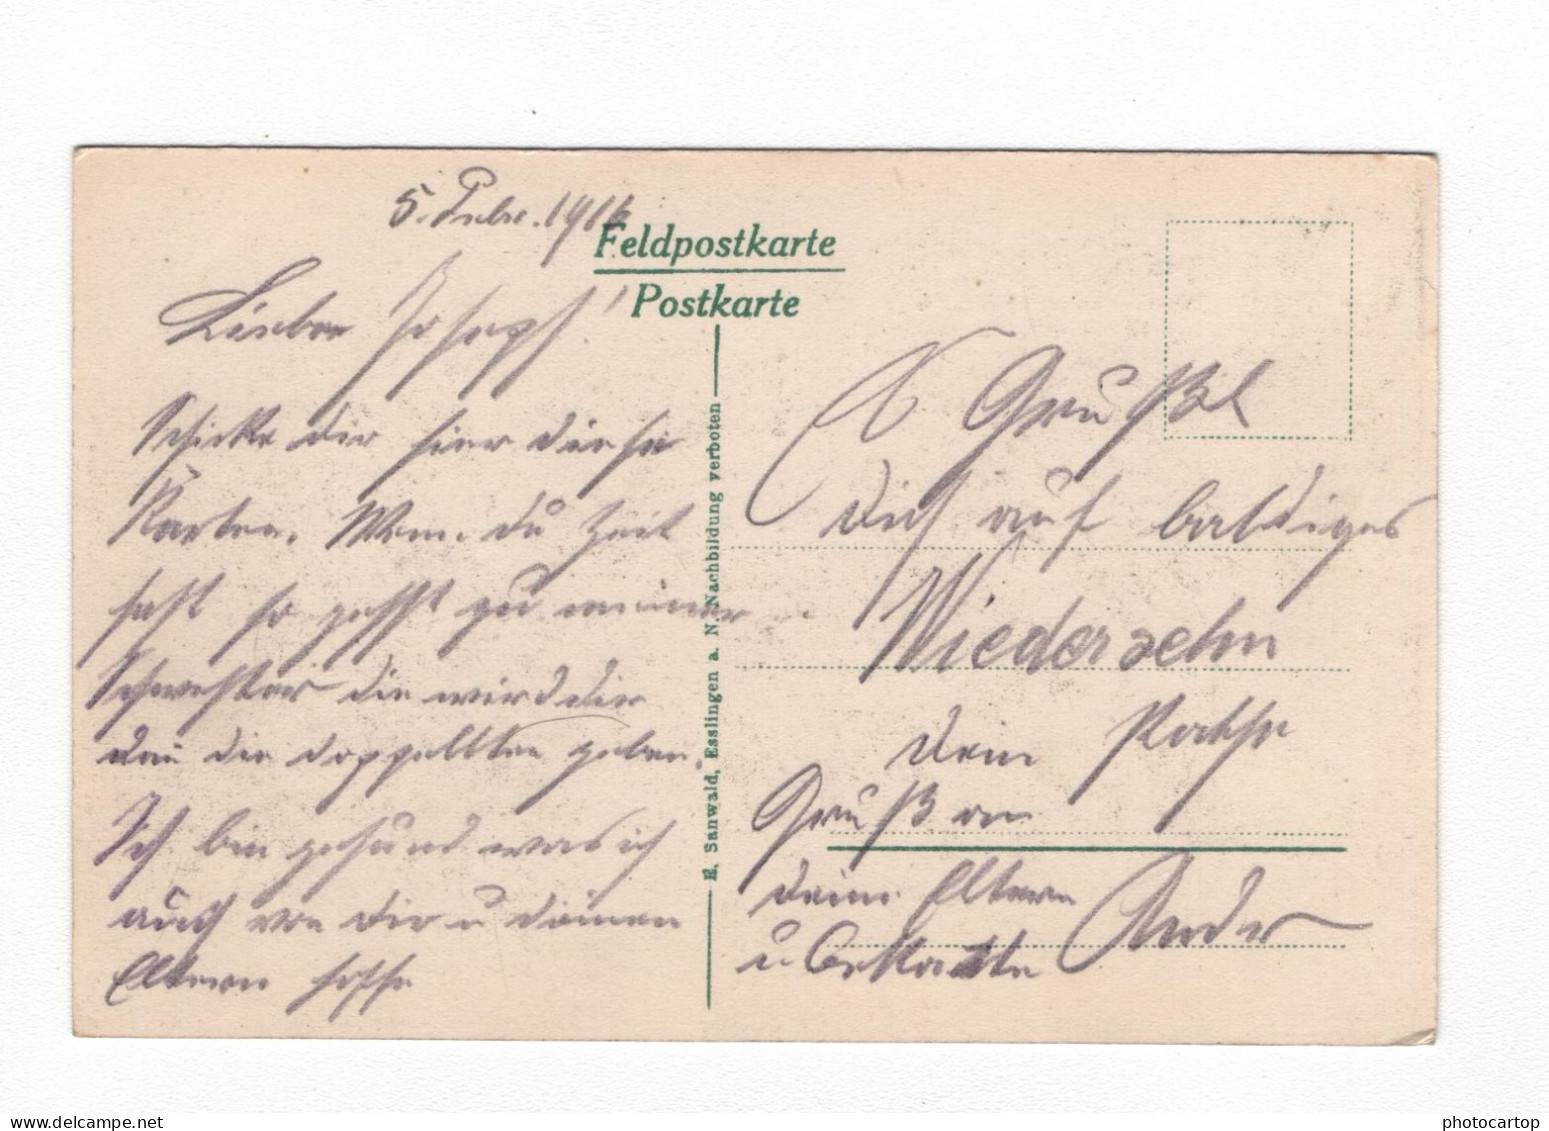 5. Febr. 1916
Feldpostkarte
Postkarte
Lieber Joseph!
Schicke dir hier diese
Karten. Wen. du Zeit
hast so gehst zu meiner
Schwester die wird dir
dan die doppeltten geben.
Ich bin gesund was ich
auch von dir u deinen
Eltern hoffe
E. Sanwald, Esslingen a. N. Nachbildung verboten
Es Grüßt
Dich auf baldiges
Wiedersehn
dein
Gruß an
deine Eltern
u Bekannte
photocartop